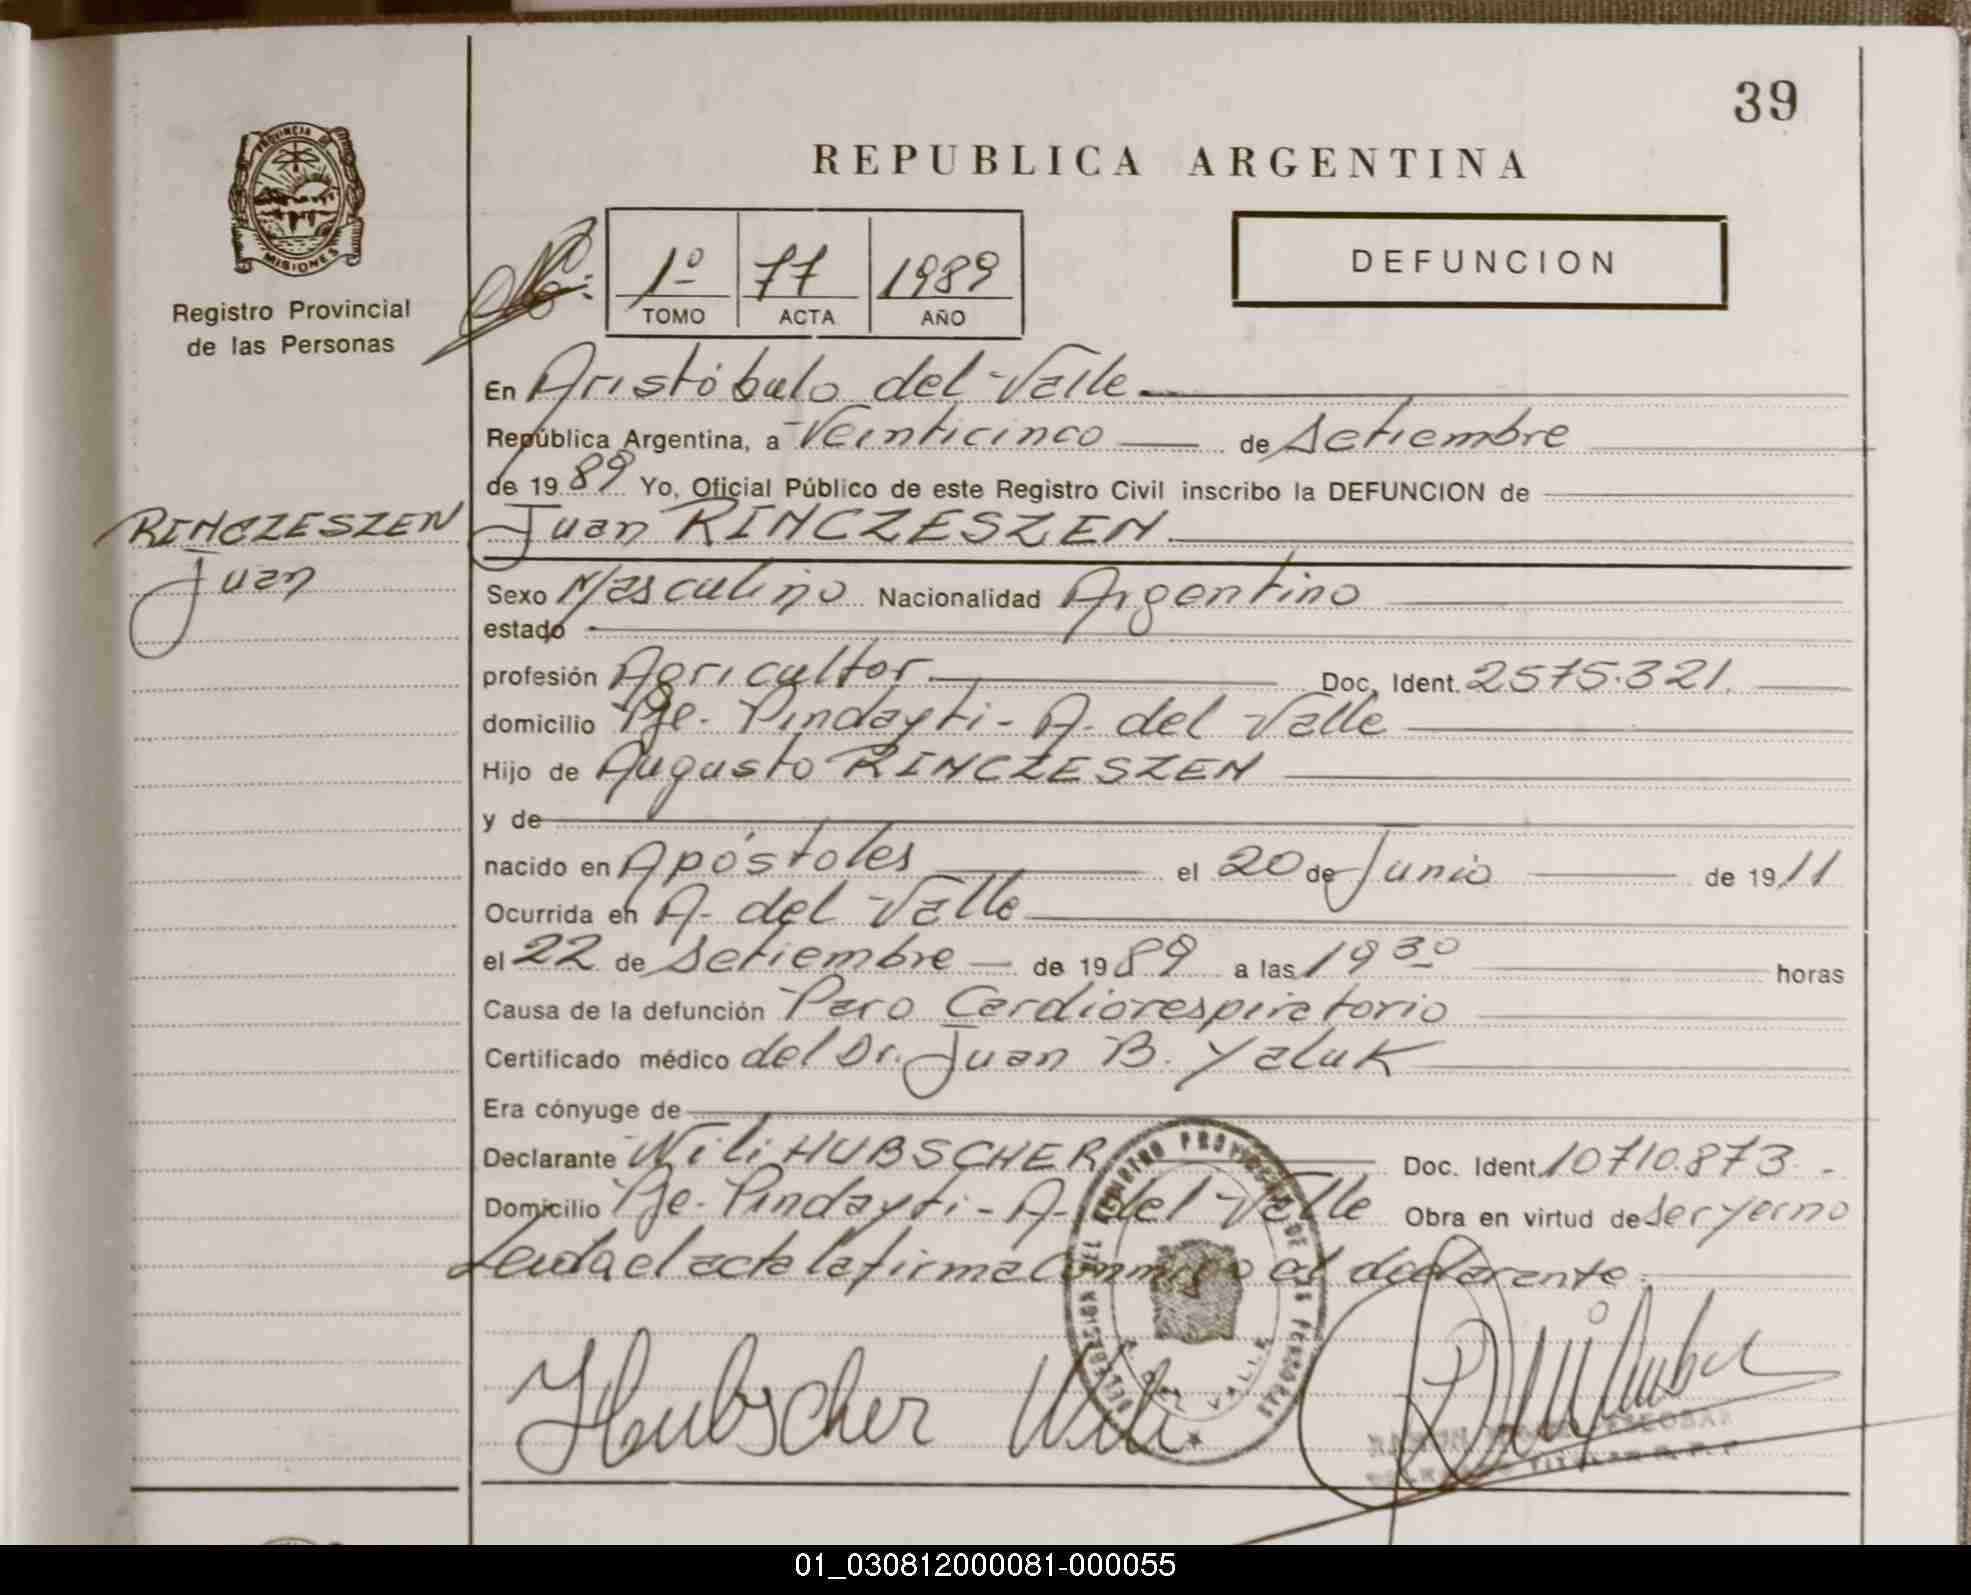 39
PROVINCIA DE
MISIONES
Registro Provincial
de las Personas
REPUBLICA ARGENTINA
1º 77 1989
TOMO ACTA AÑO
DEFUNCION
En Aristóbulo del Valle
República Argentina, a Veinticinco de Setiembre
de 1989 Yo, Oficial Público de este Registro Civil inscribo la DEFUNCION de
RINCZESZEN
Juan
Juan RINCZESZEN
Sexo Masculino Nacionalidad Argentino
estado
profesión Agricultor Doc. Ident. 2575.321.
domicilio Pje. Pindayti - A. del Valle
Hijo de Augusto RINCZESZEN
y de
nacido en Apóstoles el 20 de Junio de 1911
Ocurrida en A. del Valle
el 22 de Setiembre de 1989 a las 19 30 horas
Causa de la defunción Paro Cardiorespiratorio
Certificado médico del Dr. Juan B. Yaluk
Era cónyuge de
Declarante Wili HUBSCHER Doc. Ident. 10710.873.
Domicilio Pje. Pindayti - A. del Valle Obra en virtud de ser yerno
Leida el acta la firma conmigo el declarante.
Hubscher Wili
01_030812000081-000055